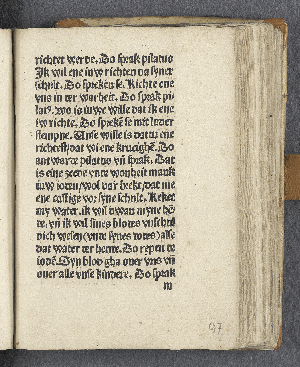 richtet werde. Do sprak pilatus
Ik wil ene juw richten na syner
schult. Do spreken se. Richte ene
vns in ter warheit. Do sprak pi
lat9. wo is juwe wille dat ik ene
juw richte. Do sprekē se mit luder
stempne. Unse wille is dat tu ene
richtest dat wi ene krucighē. Do
antwerte pilatus vñ sprak. Dat
is eine sede vnte wonheit mank
iuw ioten wol vor
ene castige vor syne schult. Reket
my water. ik wil dwan myne hē
te. vñ ik wil sines blodes vnschul
dich wesen (vnte synes totes) alse
dat water ter herte. Do repen te
iotē. Syn blod gha over vns vñ
over alle vnse kindere. Do sprak
m
97